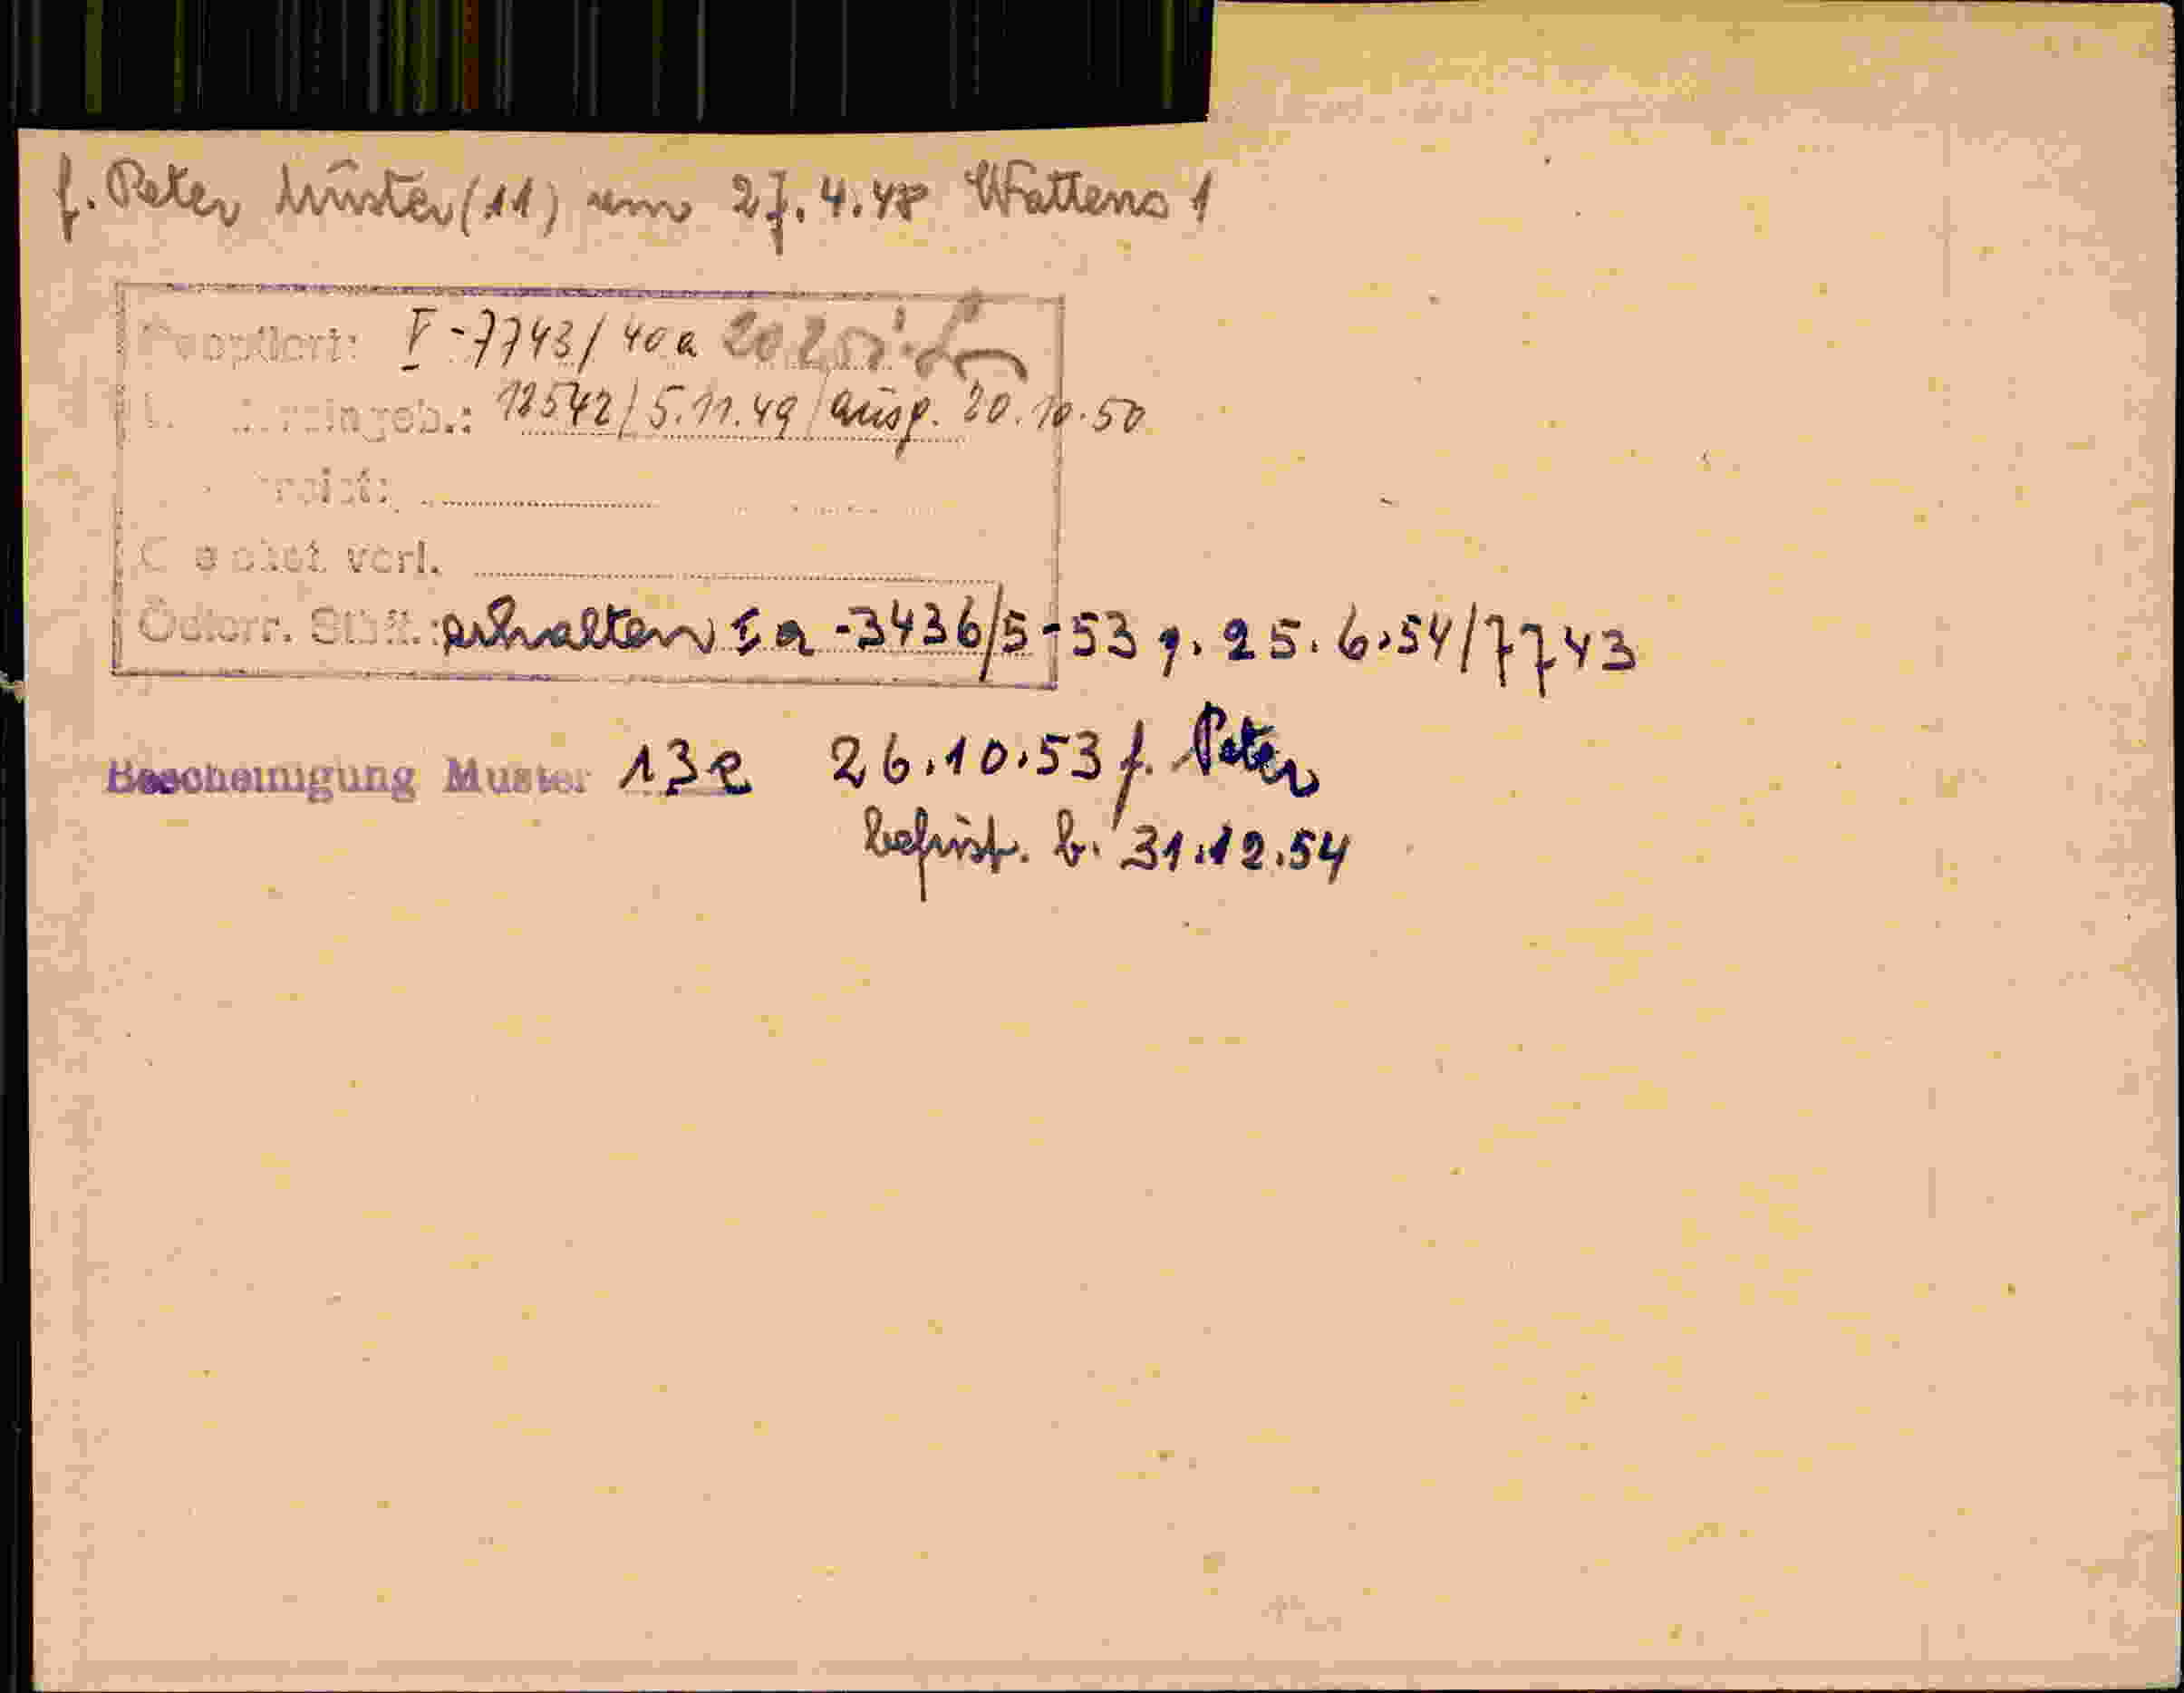 f. Peter Muster (11) am 27.4.48 Wattens 1
V-7743/40a
12542/5.11.49/ausg. 20.10.50
verl.
Österr. Stbft.: erhalten Ia-3436/5-53 v. 25.6.54/7743
Bescheinigung Muster 13e 26.10.53 f. Peter
befrist. b. 31.12.54